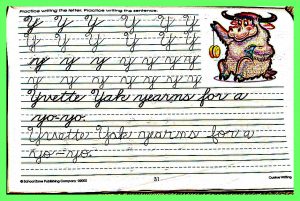 Practice writing the letter. Practice writing the sentence.
Y Y Y Y Y Y
Y Y Y Y Y Y
y y y y y y y y
y y y y y y y y
Yvette Yak yearns for a
yo-yo.
Yvette Yak yearns for a
yo-yo.
© School Zone Publishing Company
51
Cursive Writing